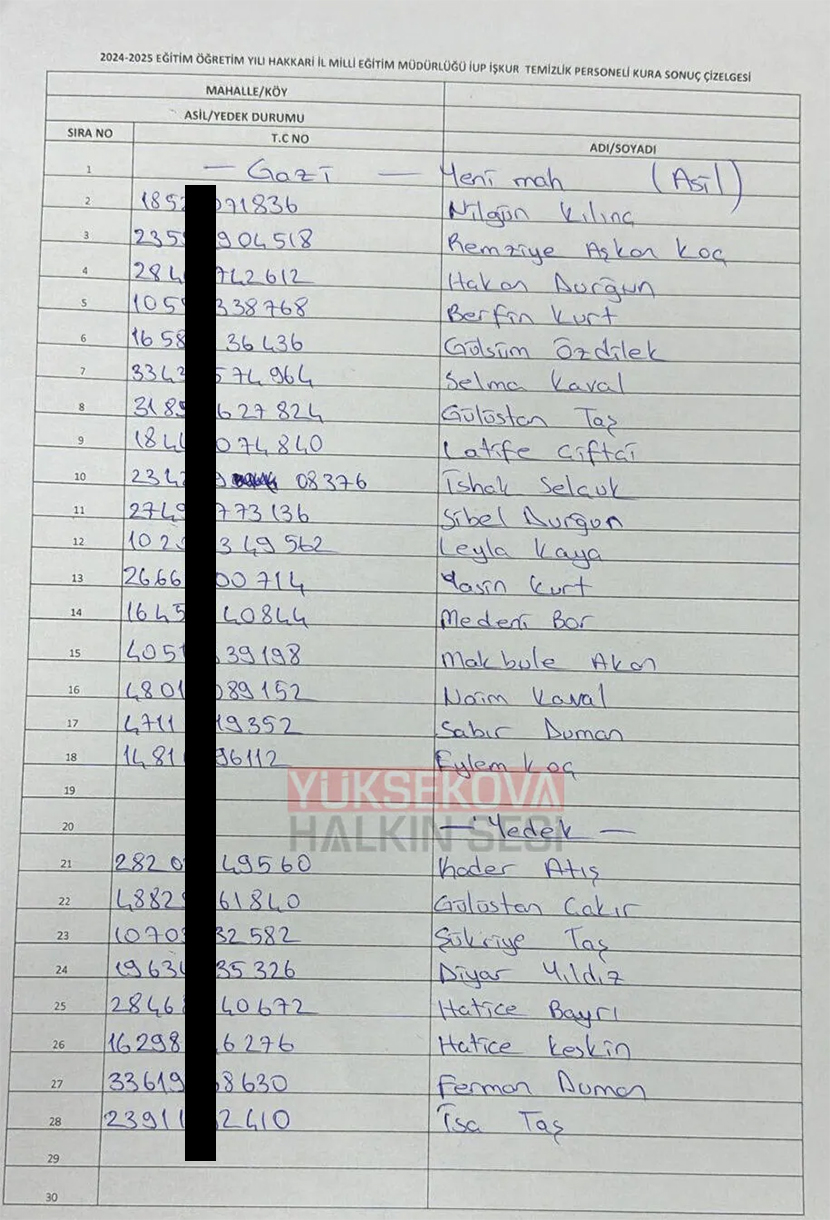 2024-2025 EĞİTİM ÖĞRETİM YILI HAKKARİ İL MİLLİ EĞİTİM MÜDÜRLÜĞÜ İUP İŞKUR TEMİZLİK PERSONELİ KURA SONUÇ ÇİZELGESİ
MAHALLE/KÖY
ASİL/YEDEK DURUMU
SIRA NO T.C NO ADI/SOYADI
1 — Gazi — Yeni mah (Asil)
2 185 071836 Nilgün Kılınç
3 235 904518 Remziye Aşkan Koç
4 284 742612 Hakan Durğun
5 105 338768 Berfin Kurt
6 1658 36436 Gülsüm Özdilek
7 334 574964 Selma Kaval
8 318 627824 Gülüstan Taş
9 184 074840 Latife Çiftçi
10 234 9 08376 İshak Selçuk
11 274 773136 Sibel Durgun
12 102 349562 Leyla Kaya
13 2666 00714 Yasin Kurt
14 1645 40844 Medeni Bor
15 4051 39198 Makbule Akan
16 4801 089152 Naim Kaval
17 4711 19352 Sabır Duman
18 1481 96112 Eylem Koç
19
YÜKSEKOVA
HALKIN SESİ
20 — Yedek —
21 2820 49560 Kader Atış
22 4882 61840 Gülüstan Çakır
23 1070 32582 Şükriye Taş
24 1963 35326 Diyar Yıldız
25 2846 40672 Hatice Bayrı
26 16298 6276 Hatice Keskin
27 33619 8630 Ferman Duman
28 23911 2410 İsa Taş
29
30